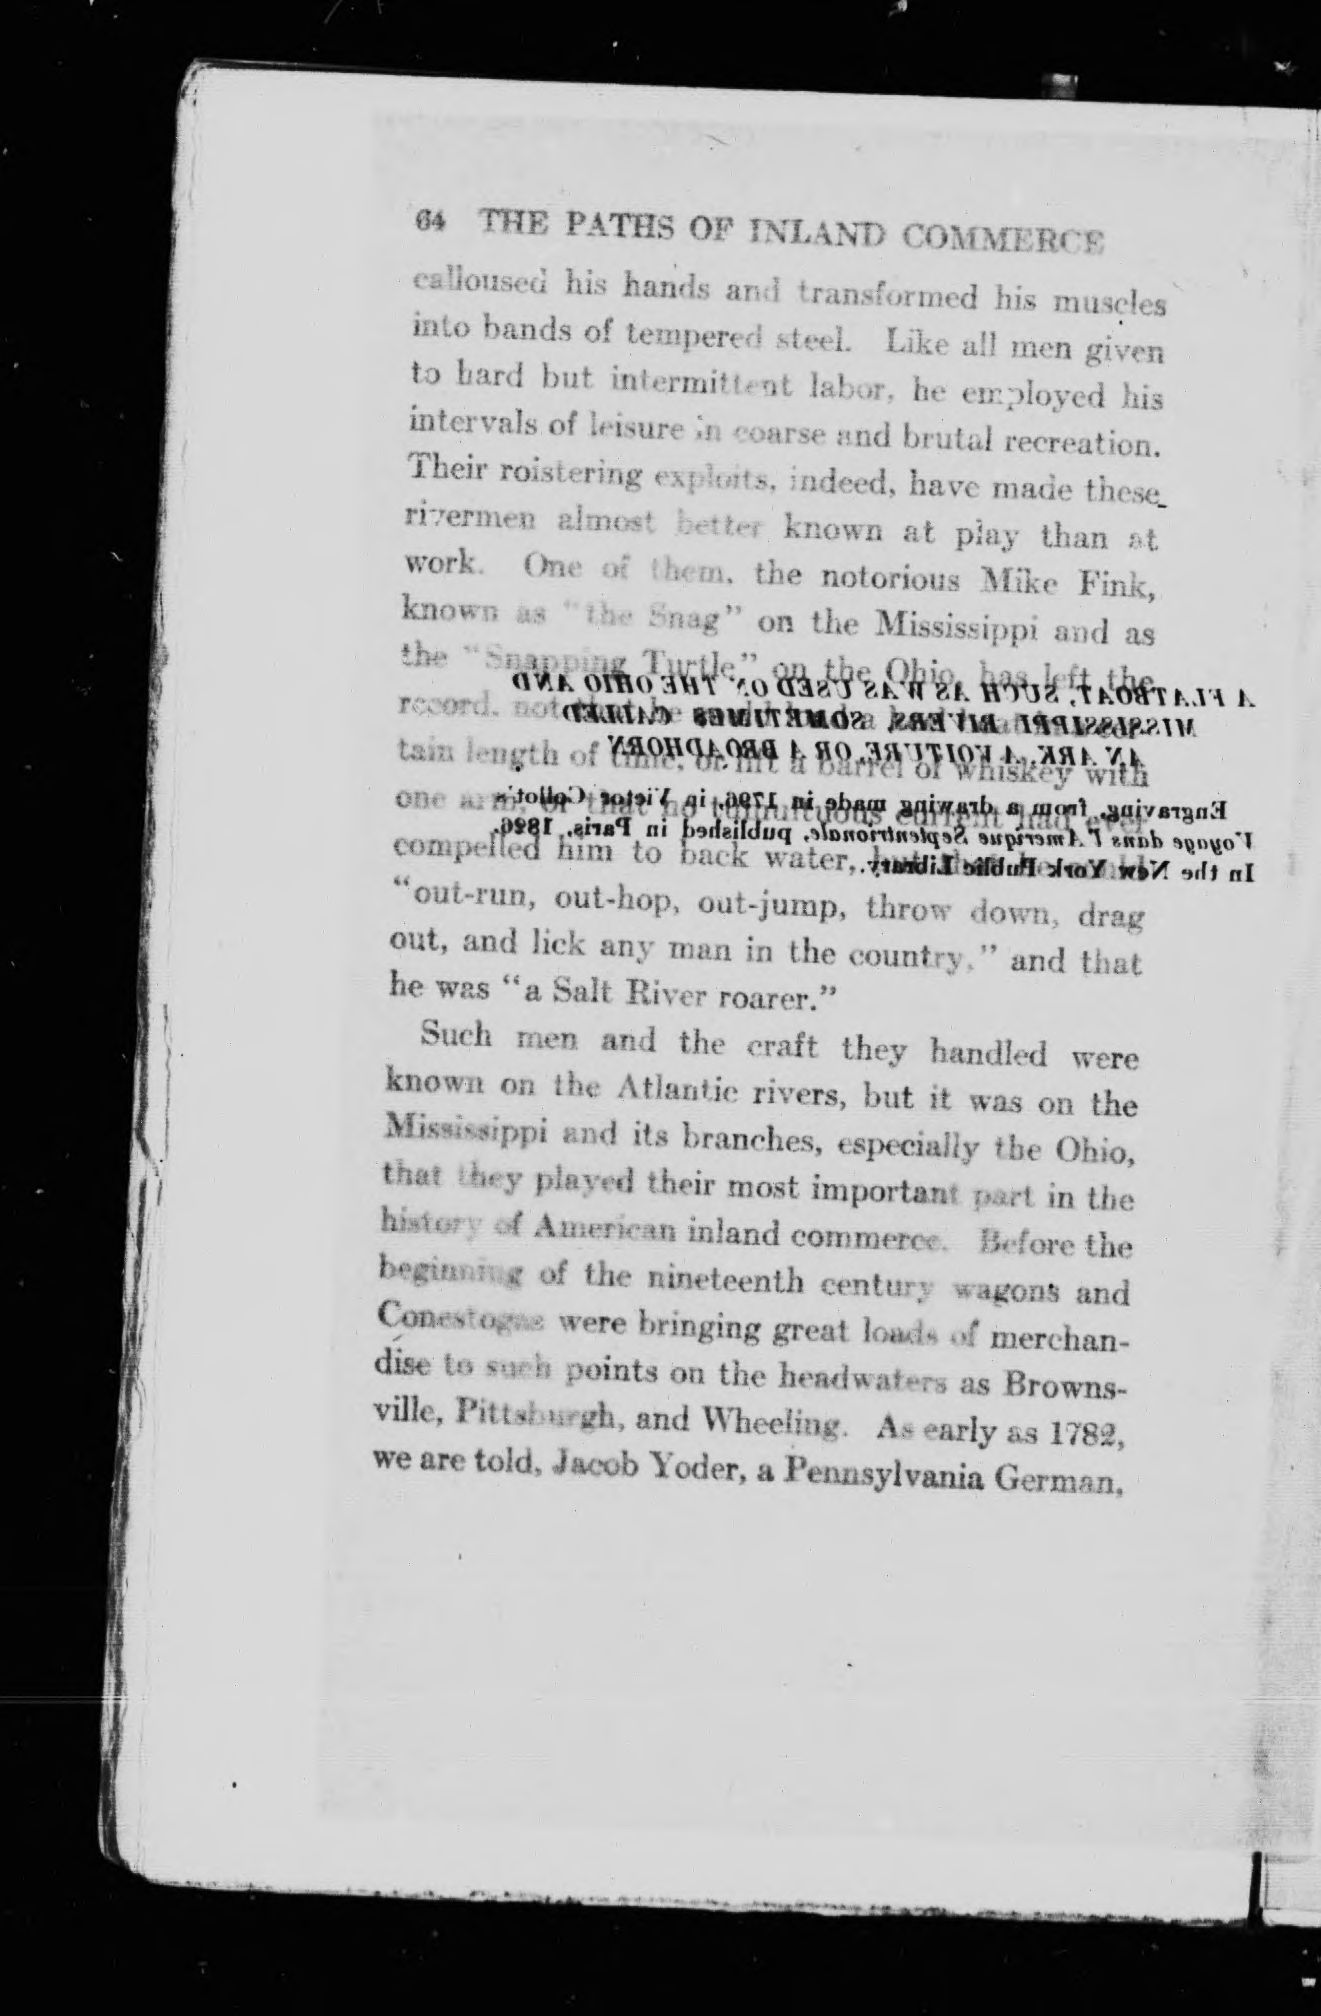 64 THE PATHS OF INLAND COMMERCE
calloused his hands and transformed his muscles
into bands of tempered steel. Like all men given
to hard but intermittent labor, he employed his
intervals of leisure in coarse and brutal recreation.
Their roistering exploits, indeed, have made these
rivermen almost better known at play than at
work. One of them, the notorious Mike Fink,
known as "the Snag" on the Mississippi and as
the "Snapping Turtle" on the Ohio, has left the
record, not that he
tain length of time, or lift a barrel of whiskey with
one arm, or that no tumultuous current had ever
compelled him to back water,
"out-run, out-hop, out-jump, throw down, drag
out, and lick any man in the country," and that
he was "a Salt River roarer."
Such men and the craft they handled were
known on the Atlantic rivers, but it was on the
Mississippi and its branches, especially the Ohio,
that they played their most important part in the
history of American inland commerce. Before the
beginning of the nineteenth century wagons and
Conestogas were bringing great loads of merchan-
dise to such points on the headwaters as Browns-
ville, Pittsburgh, and Wheeling. As early as 1782,
we are told, Jacob Yoder, a Pennsylvania German,
A FLATBOAT, SUCH AS WAS USED ON THE OHIO AND
MISSISSIPPI RIVERS, SOMETIMES CALLED
AN ARK, A VOITURE, OR A BROADHORN
Engraving, from a drawing made in 1796, in Victor Collot's
Voyage dans l'Amerique Septentrionale, published in Paris, 1826.
In the New York Public Library.